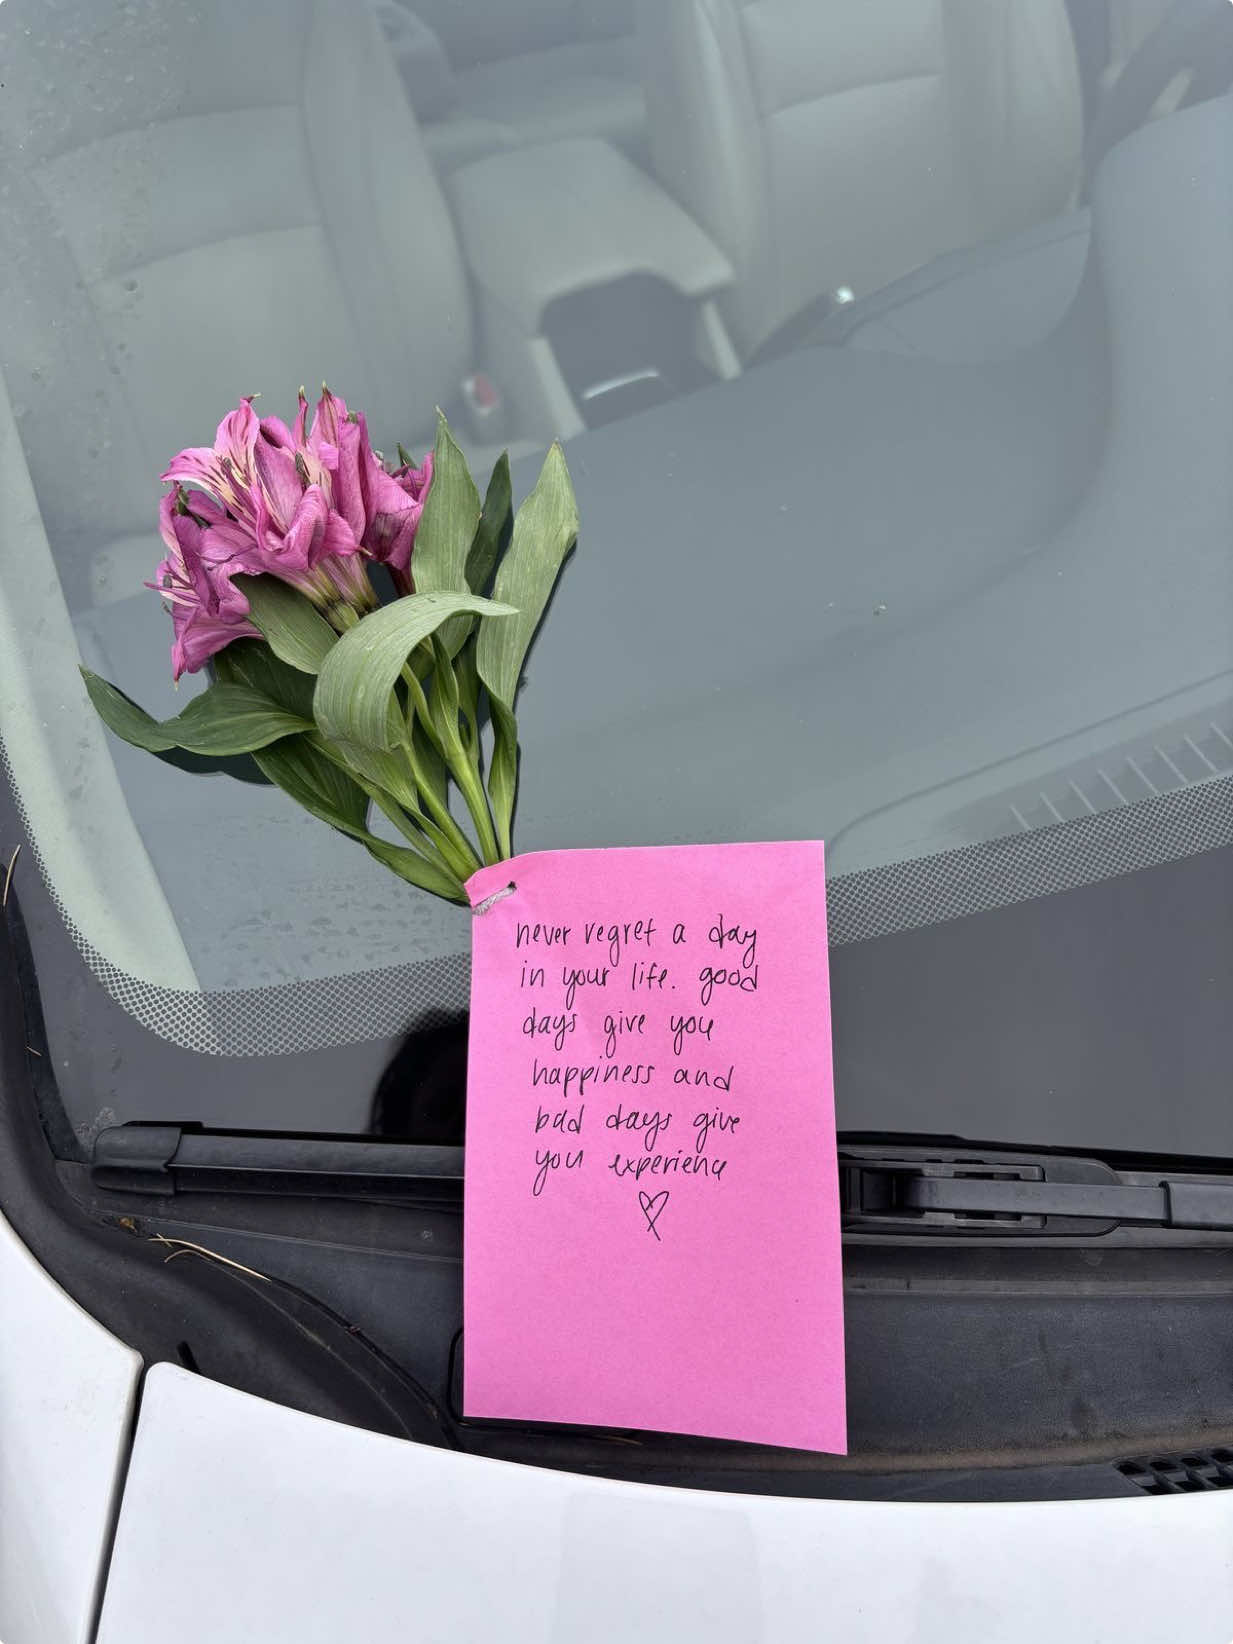 never regret a day
in your life. good
days give you
happiness and
bad days give
you experience